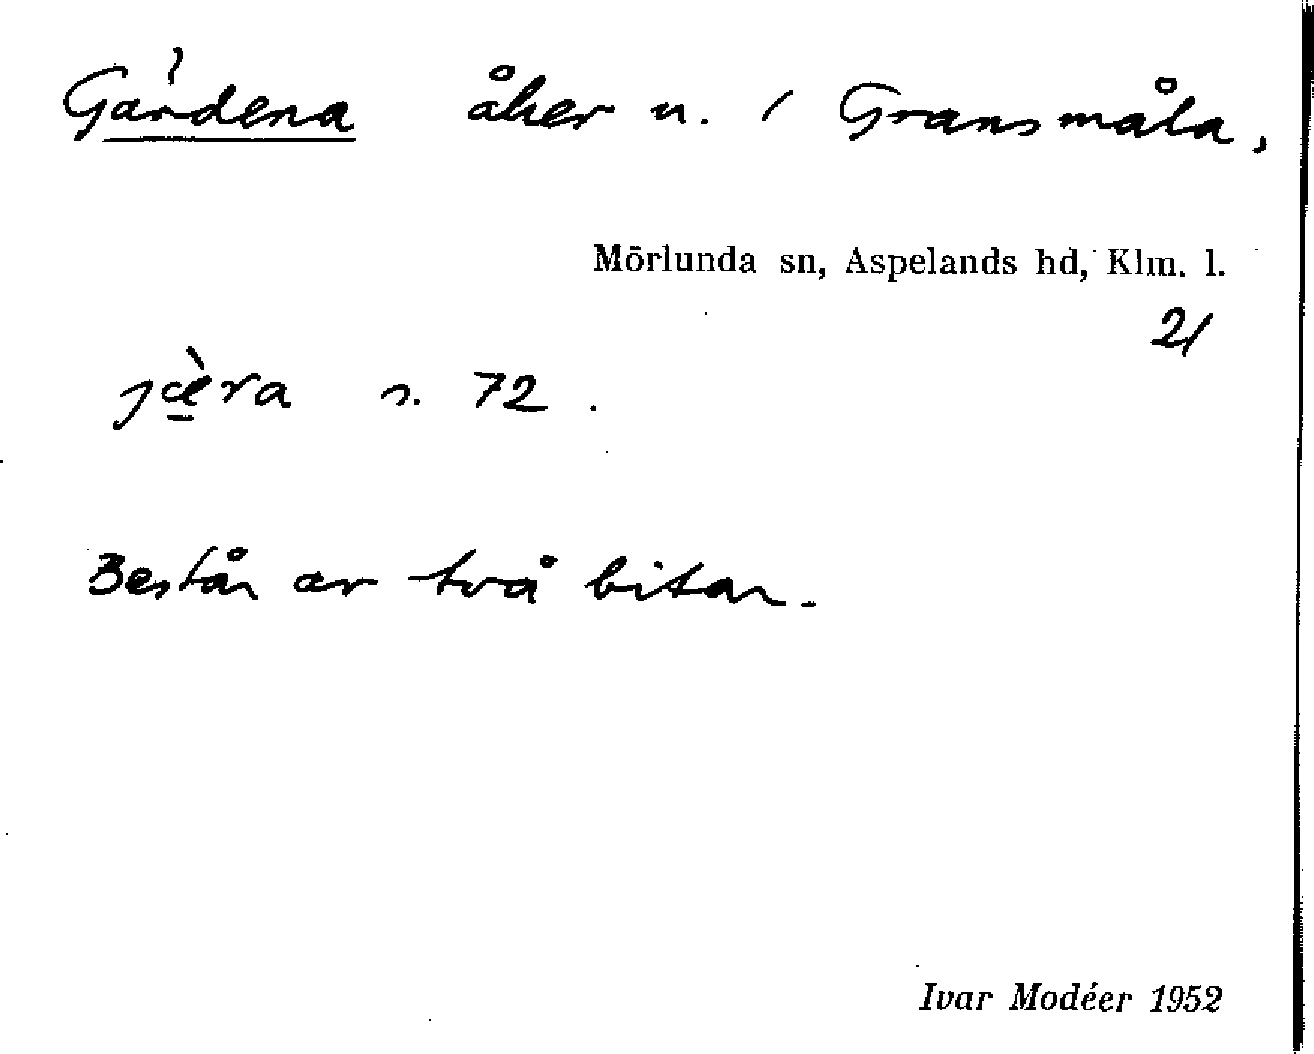 Gärdena åker n. i Gransmåla,
Mörlunda sn, Aspelands hd, Klm. l.
21
jæ̀ra s. 72.
Består av två bitar.
Ivar Modéer 1952